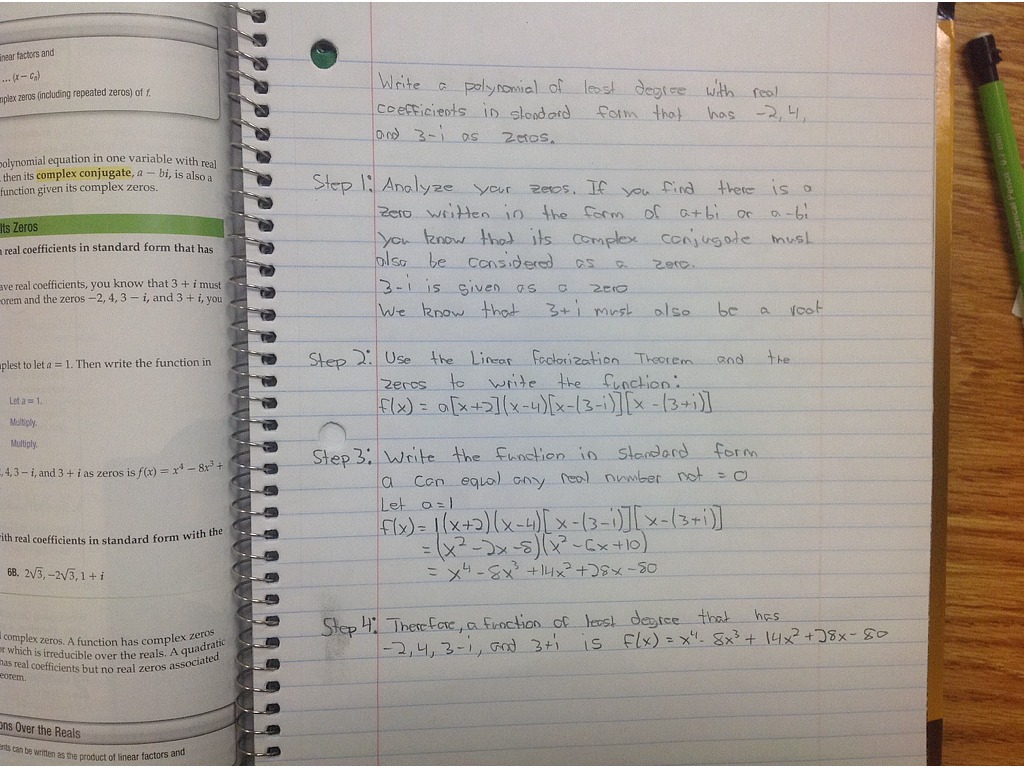 near factors and
... (x − cₙ)
nplex zeros (including repeated zeros) of f.
polynomial equation in one variable with real
then its complex conjugate, a − bi, is also a
function given its complex zeros.
Its Zeros
real coefficients in standard form that has
ave real coefficients, you know that 3 + i must
orem and the zeros −2, 4, 3 − i, and 3 + i, you
nplest to let a = 1. Then write the function in
Let a = 1.
Multiply.
Multiply.
, 4, 3 − i, and 3 + i as zeros is f(x) = x⁴ − 8x³ +
ith real coefficients in standard form with the
6B. 2√3, −2√3, 1 + i
l complex zeros. A function has complex zeros
or which is irreducible over the reals. A quadratic
has real coefficients but no real zeros associated
eorem.
ons Over the Reals
ents can be written as the product of linear factors and
Write a polynomial of least degree with real
coefficients in standard form that has -2, 4,
and 3-i as zeros.
Step 1: Analyze your zeros. If you find there is a
zero written in the form of a+bi or a-bi
you know that its complex conjugate must
also be considered as a zero.
3-i is given as a zero
We know that 3+i must also be a root
Step 2: Use the Linear Factorization Theorem and the
zeros to write the function:
f(x) = a[x+2](x-4)[x-(3-i)][x-(3+i)]
Step 3: Write the function in standard form
a can equal any real number not = 0
Let a=1
f(x) = 1(x+2)(x-4)[x-(3-i)][x-(3+i)]
= (x² -2x -8)(x² -6x+10)
= x⁴ -8x³ +14x² +28x -80
Step 4: Therefore, a function of least degree that has
-2, 4, 3-i, and 3+i is f(x) = x⁴ - 8x³ + 14x² + 28x - 80